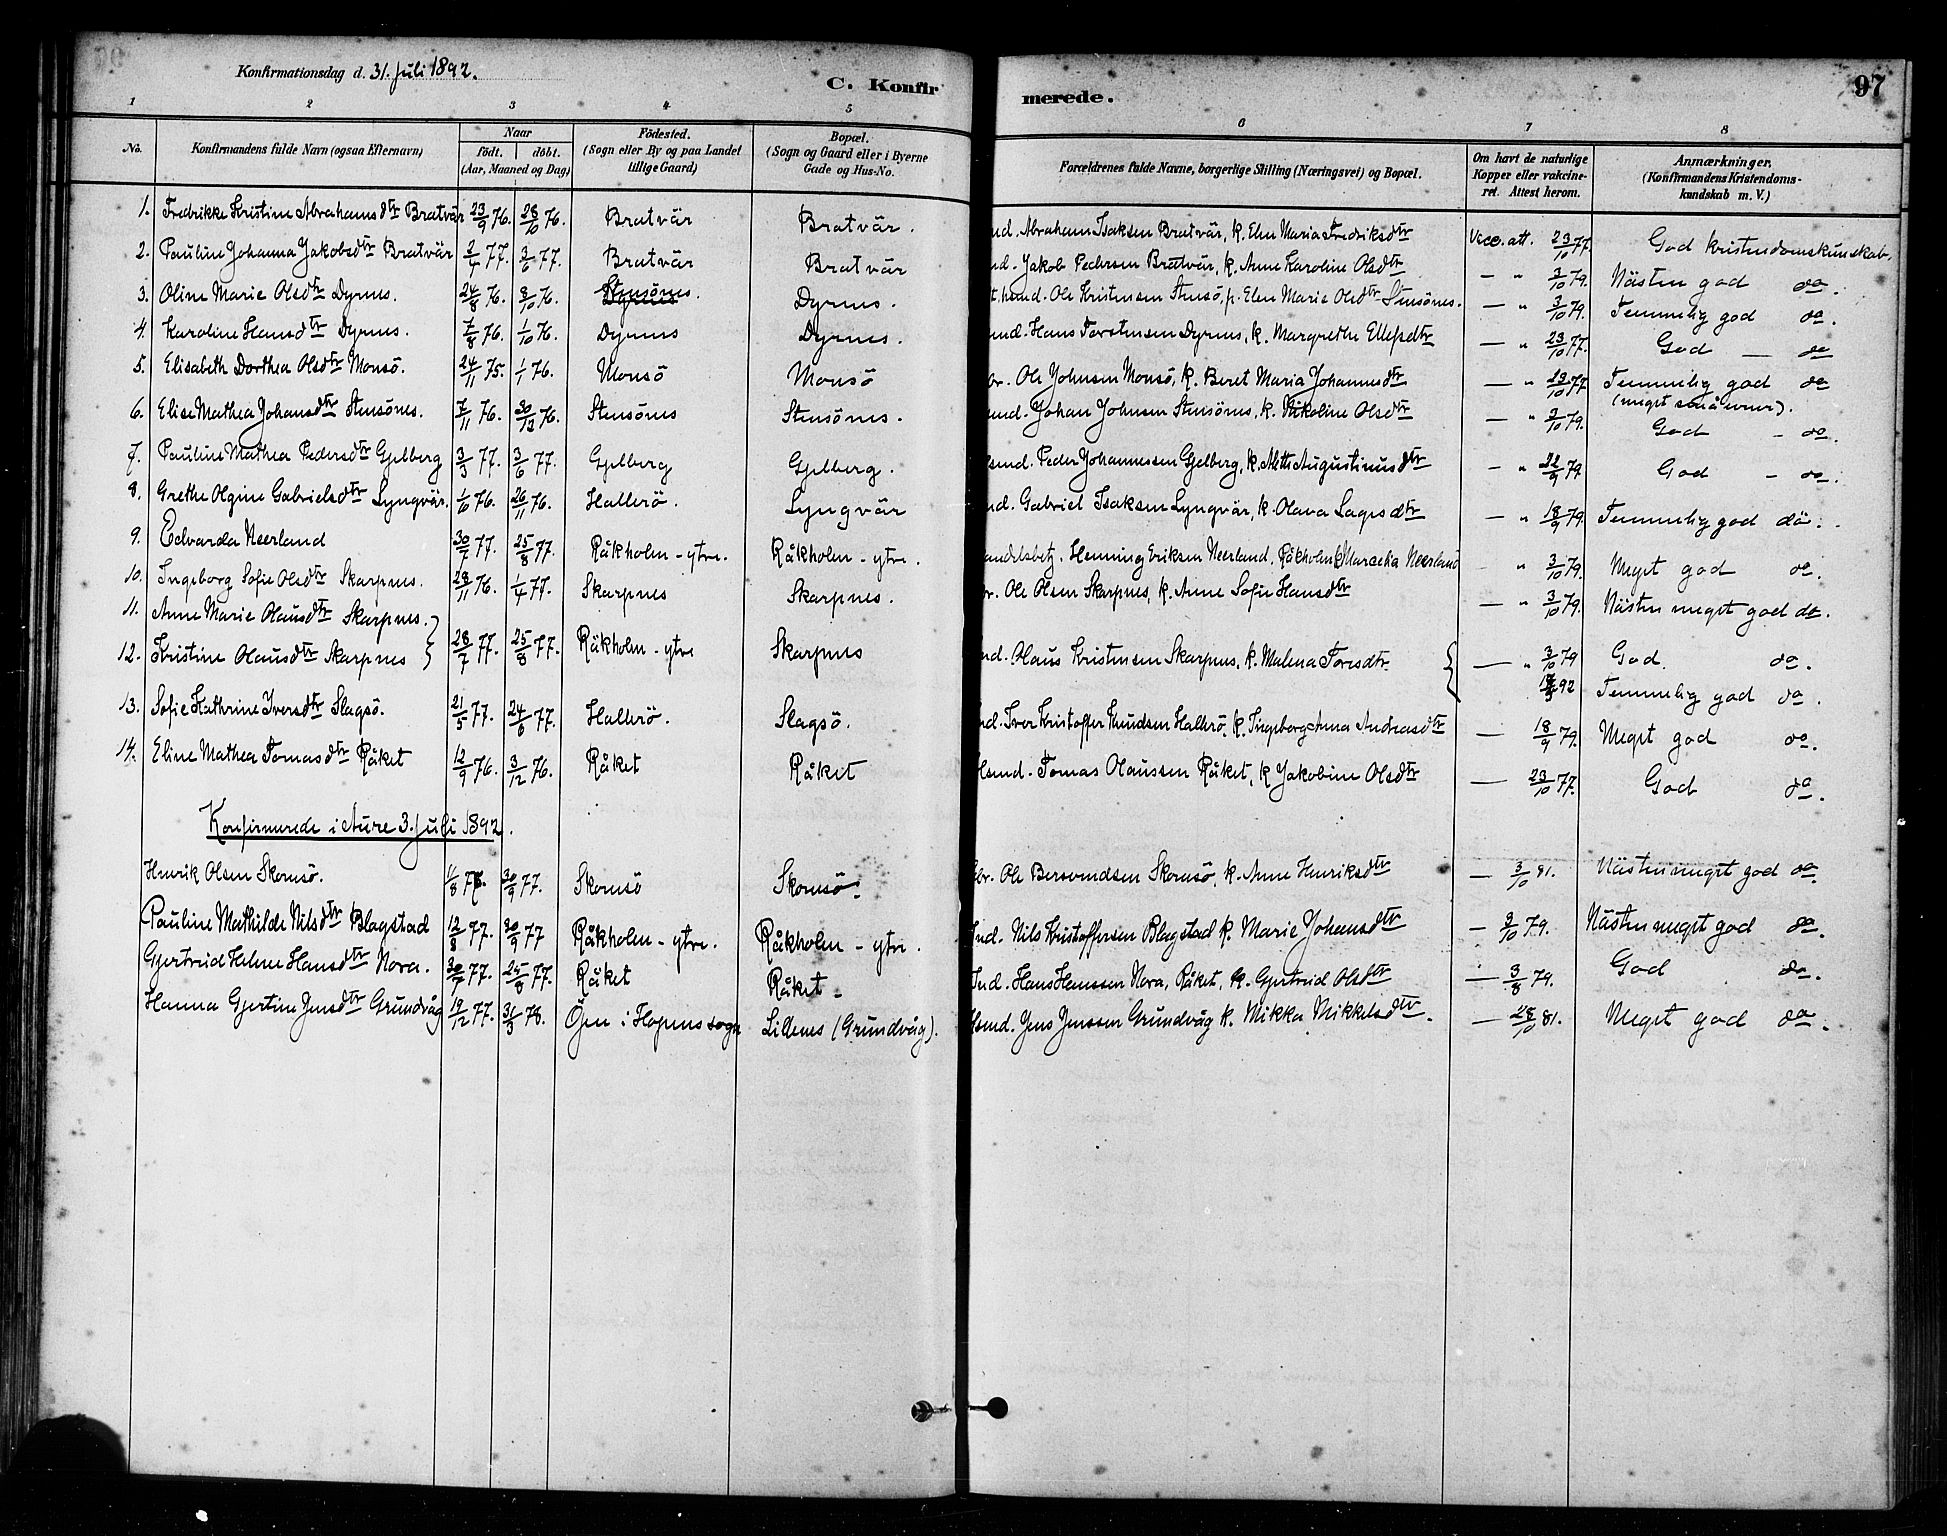 Konfirmationsdag d. 31. Juli 1892.
C. Konfirmerede.
97
1 2 3 4 5 6 7 8
No.
Konfirmandens fulde Navn (ogsaa Efternavn)
Naar
födt. | döbt.
(Aar, Maaned og Dag)
Födested.
(Sogn eller By og paa Landet
tillige Gaard)
Bopæl.
(Sogn og Gaard eller i Byerne
Gade og Hus-No.
Forældrenes fulde Navne, borgerlige Stilling (Næringsvei) og Bopæl.
Om havt de naturlige
Kopper eller vakcine-
ret. Attest herom.
Anmærkninger,
(Konfirmandens Kristendoms-
kundskab m. V.)
1. Fredrikke Kristine Abrahamsdtr Bratvär 23/9 76. 28/10 76. Bratvär Bratvär. Abraham Isaksen Bratvär, k. Elen Maria Fredriksdtr Vacc. att. 23/10 77. God kristendomskunskab.
2. Pauline Johanna Jakobsdtr Bratvär 2/4 77. 3/6 77. Bratvär Bratvär Jakob Pedersen Bratvär, k. Anne Karoline Olsdtr — " 3/10 79. Nästen god do.
3. Oline Marie Olsdtr Dyrnes. 24/8 76. 8/10 76. Stensönes. Dyrnes. Ole Kristensen Stensö, p. Elen Marie Olsdtr Stensönes. — " 3/10 79. Temmelig god do.
4. Karoline Hansdtr Dyrnes. 7/8 76. 1/10 76. Dyrnes Dyrnes. Hans Torstensen Dyrnes, k. Margrethe Ellefsdtr — " 23/10 77. God — do
5. Elisabeth Dorthea Olsdtr Monsö. 24/11 75. 1/1 76. Monsö Monsö Ole Johnsen Monsö, k. Beret Maria Johannesdtr — " 23/10 77 Temmelig god do
(meget små evner).
6. Elise Mathea Johansdtr Stensönes. 7/11 76. 30/12 76. Stensönes Stensönes. Johan Johnsen Stensönes, k. Nikoline Olsdtr — " 3/10 79. God - do.
7. Pauline Mathea Pedersdtr Gjelberg 3/3 77. 3/6 77. Gjelberg Gjelberg. Peder Johannessen Gjelberg, k. Augustinusdtr — " 22/9 79 God - do.
8. Grethe Olgine Gabrielsdtr Lyngvär. 76. 26/11 76. Hallerö. Lyngvär Gabriel Isaksen Lyngvär, k. Olava Lagesdtr — " 18/9 79. Temmelig god do.
9. Edvarda Neerland 30/7 77. 25/8 77. Råkholm - ytre. Råkholm - ytre. Henning Eriksen Neerland, Råkholm k. Neerland — " 3/10 79. Meget god do.
10. Ingeborg Sofie Olsdtr Skarpnes. 28/11 76. 1/4 77. Skarpnes Skarpnes. Ole Olsen Skarpnes, k. Anne Sofie Hansdtr — " 3/10 79. Nästen meget god do.
11. Anne Marie Olausdtr Skarpnes. } 28/7 77. 25/8 77. Råkholm - ytre Skarpnes Olaus Kristensen Skarpnes, k. Malena Toresdtr { — " 3/10 79 God. do.
12. Kristine Olausdtr Skarpnes 92 Temmelig god do.
13. Sofie Kathrine Iversdtr Slagsö. 21/5 77. 24/6 77. Hallerö. Slagsö. Iver Kristoffer Knudsen Hallerö, k. Ingeborg Anna Andreasdtr — 18/9 79. Meget god do.
14. Eline Mathea Tomasdtr Råket 12/9 76. 3/12 76. Råket Råket Tomas Olaussen Råket, k Jakobine Olsdtr — 23/10 77. God do.
Konfirmerede i Aure 3. Juli 1892.
Henrik Olsen Skomsö. 1/8 77. 30/9 77. Skomsö Skomsö. Ole Bersvendsen Skomsö, k. Anne Henriksdtr — 3/10 81. Nästen meget god do.
Pauline Mathilde Nilsdtr Blagstad 12/8 77. 30/9 77 Råkholm - ytre. Råkholm - ytre. Nils Kristoffersen Blagstad k. Marie Johansdtr — 3/10 79. Nästen meget god do.
Gjertrud Helene Hansdtr Nora. 30/7 77. 25/8 77. Råket Råket - Hans Hanssen Nora, Råket, k. Gjertrud Olsdtr — 3/8 79. God do.
Hanna Gjertine Jensdtr Grundvåg 19/12 77. 31/3 78. Öen i Hopens sogn Lillenes (Grundvåg). Jens Jenssen Grundvåg k. Mikka Mikkelsdtr. — 28/10 81. Meget god do.